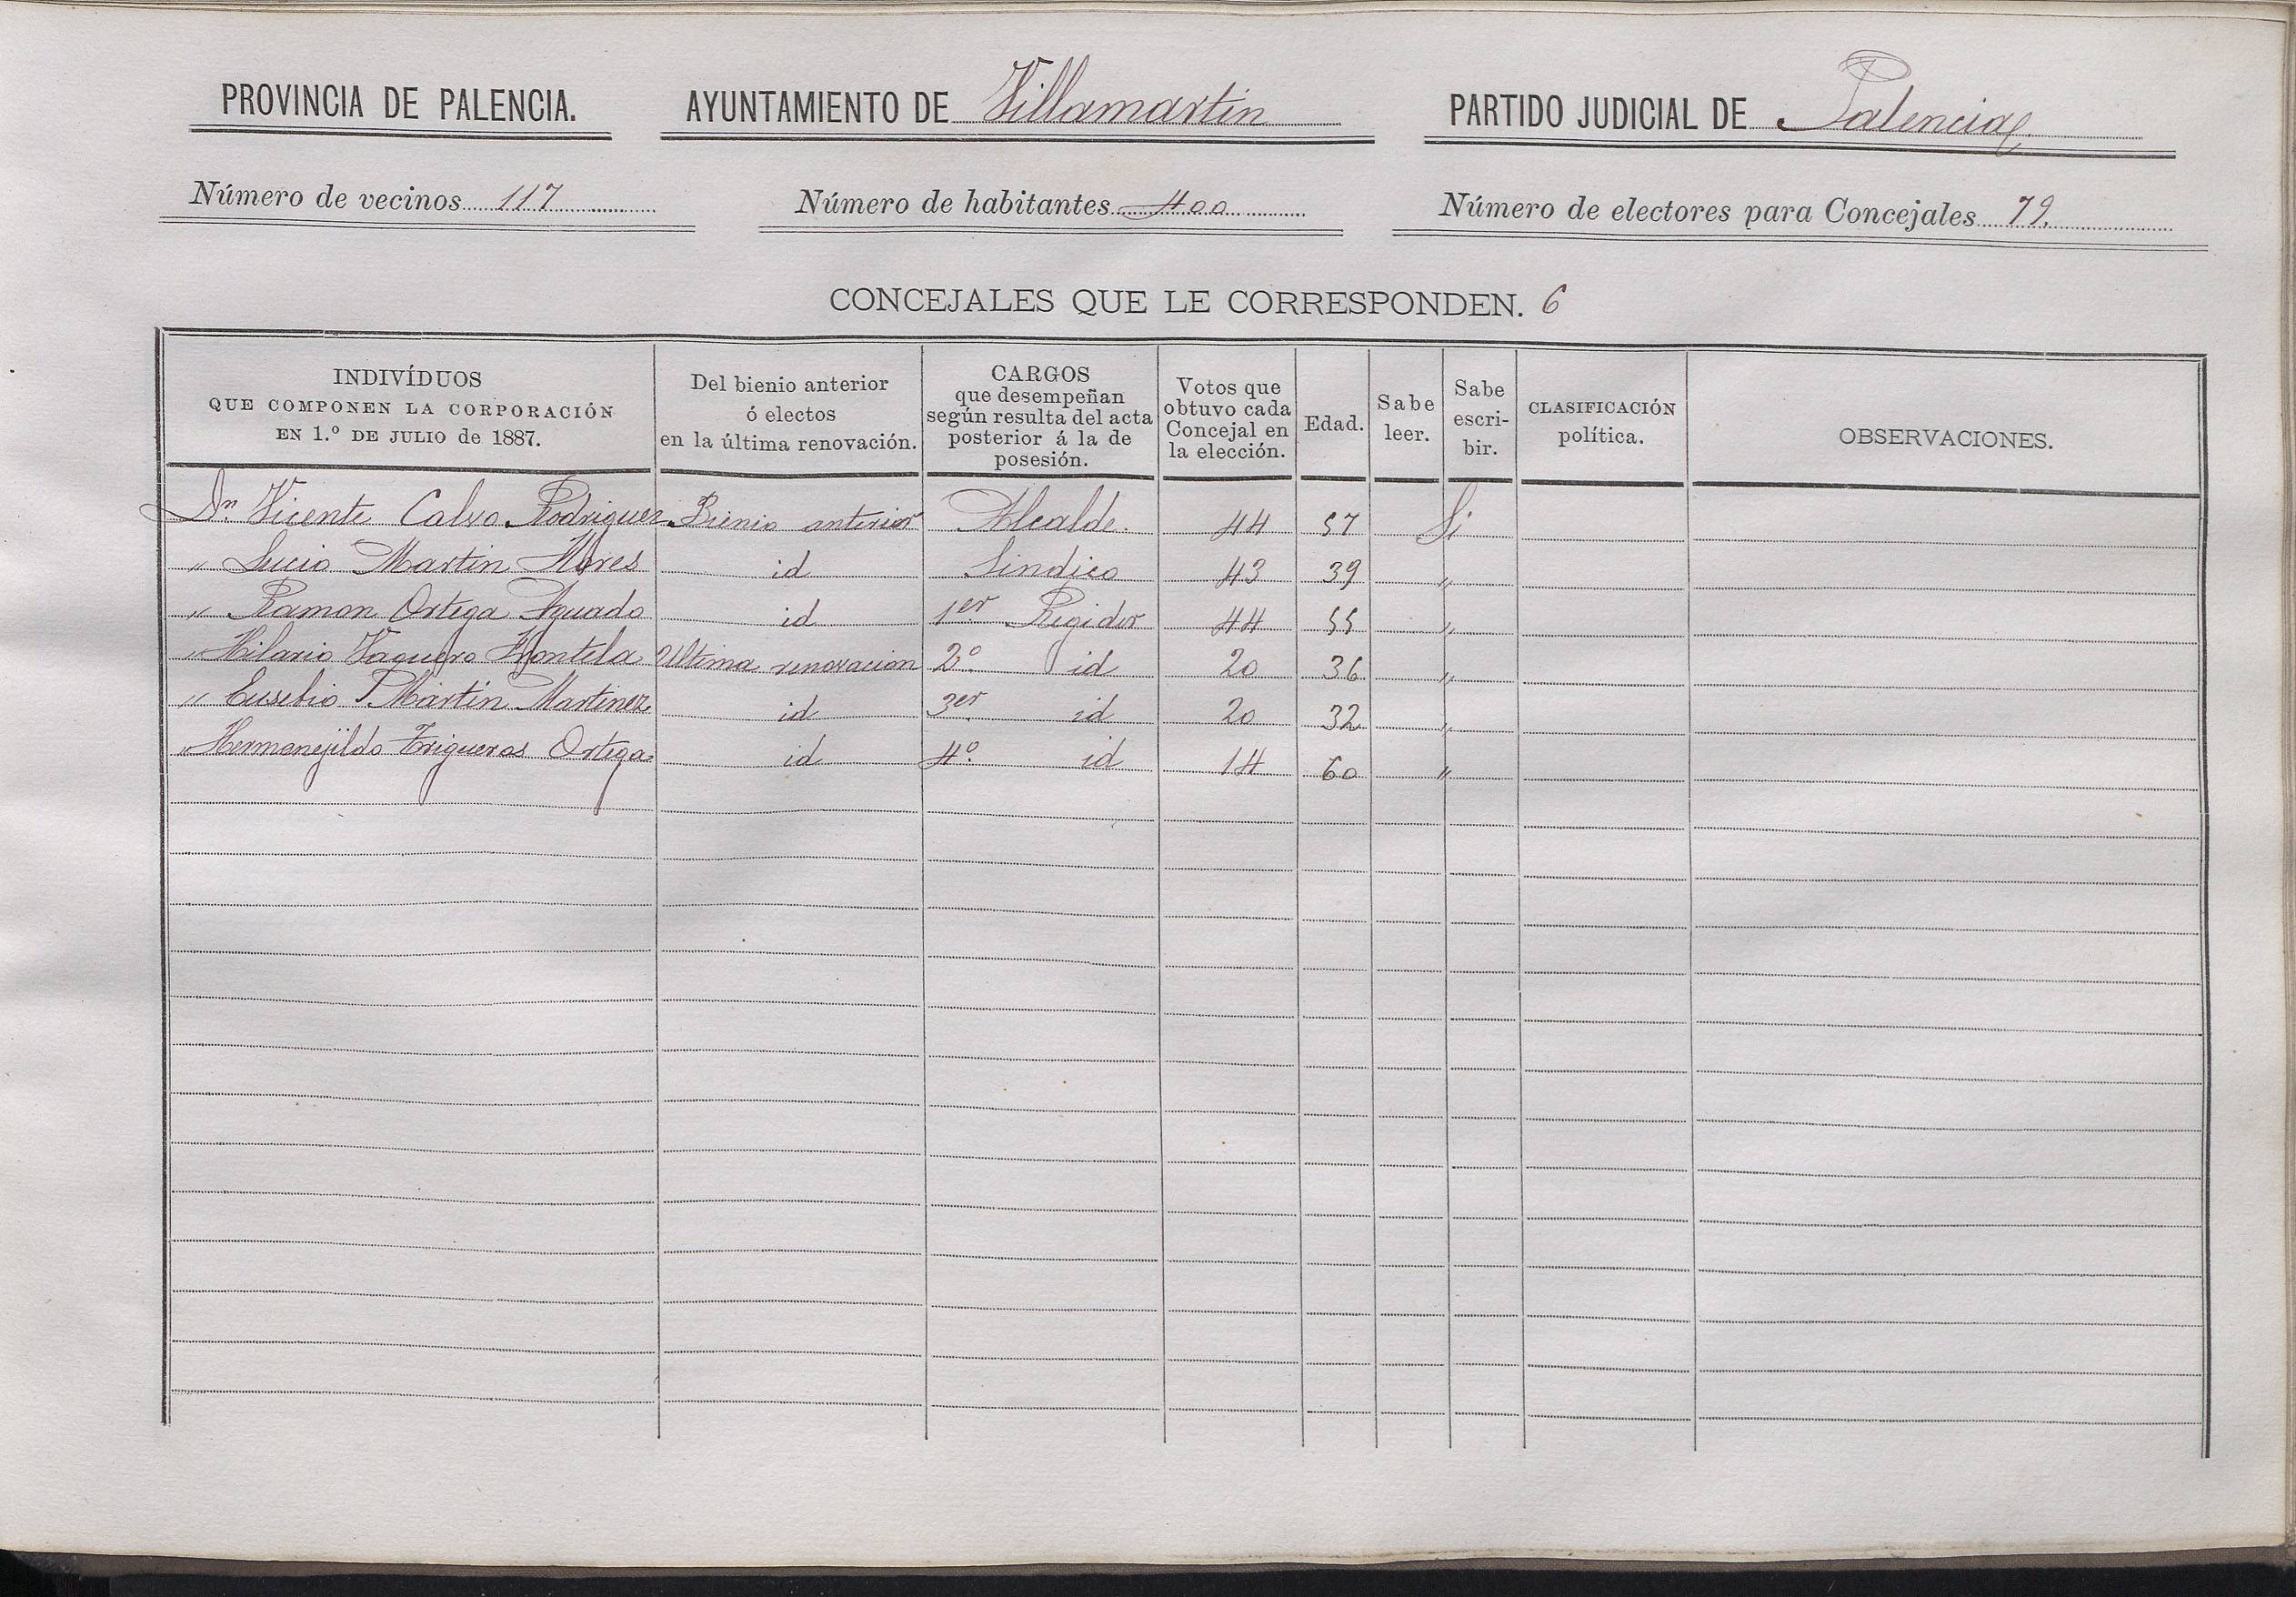 PROVINCIA DE PALENCIA. AYUNTAMIENTO DE Villamartin PARTIDO JUDICIAL DE Palencia
Número de vecinos 117 Número de habitantes 400 Número de electores para Concejales 79.
CONCEJALES QUE LE CORRESPONDEN. 6
INDIVÍDUOS
QUE COMPONEN LA CORPORACIÓN
EN 1.º DE JULIO de 1887.
Del bienio anterior
ó electos
en la última renovación.
CARGOS
que desempeñan
según resulta del acta
posterior á la de
posesión.
Votos que
obtuvo cada
Concejal en
la elección.
Edad.
Sabe
leer.
Sabe
escri-
bir.
CLASIFICACIÓN
política.
OBSERVACIONES.
Dn. Vicente Calvo Rodriguez Bienio anterior Alcalde. 44 57 Si
" Lucio Martin id Sindico 43 39 "
" Ramon Ortega Aguado id 1er. Regidor 44 55 "
" Hilario Vaquero Ultima renovacion 2º. id 20 36 "
" Eusebio Martin Martinez id 3er. id 20 32 "
" Hermenejildo Trigueros Ortega id 4º. id 14 60 "